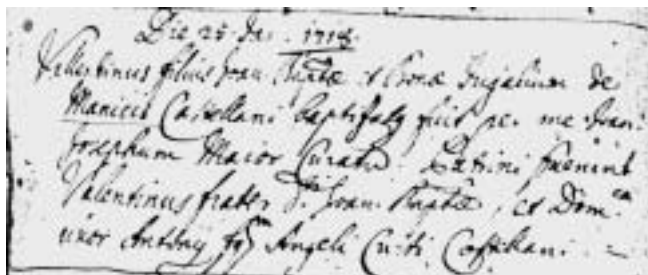 Die 25 Jan. 1718.
Vallentinus filius Joan. Bapt̄æ et Bonæ Jugalium de
Maniciis Castellani baptisatus fuit per me Joan:
Josephum Maior Curatū. Patrini fuerunt
Valentinus frater dⁱ Joan: Baptæ, et Dom.ᶜᵃ
uxor Antonij Angeli Castellani. =